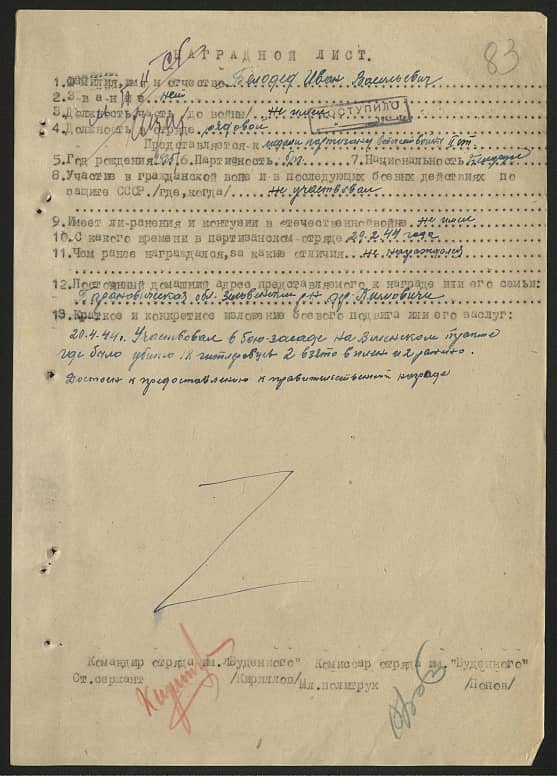 83
НАГРАДНОЙ ЛИСТ.
1. Фамилия, имя и отчество Белодед Иван Васильевич
2. Звание нет
3. Должность часть до войны/ не имел
ПОСТУПИЛО
4. Должность в отряде рядовой
Представляется к медали партизану Отеч. войны II ст.
5. Год рождения 6. Партийность б/п 7. Национальность
8. Участие в гражданской воне и в последующих боевых действиях по
защите СССР /где, когда/ не участвовал
9. Имеет ли ранения и контузии в отечественной войне не имел
10. С какого времени в партизанском отряде 29.2.44 года
11. Чем ранее награждался, за какие отличия не награждался
12. Постоянный домашний адрес представляемого к награде или его семьи:
Барановическая обл. р-н
13. Краткое и конкретное изложение боевого подвига или его заслуг:
20.4.44 г. Участвовал в бою-засаде на пункте
где было убито 18 гитлеровцев 2 взято в плен и 2 ранено.
Достоен к предоставлению к правительственной награде
Командир отряда им. "Буденного" Комиссар отряда им. "Буденного"
Ст. сержант /Кириллов/ Мл. политрук /Попов/